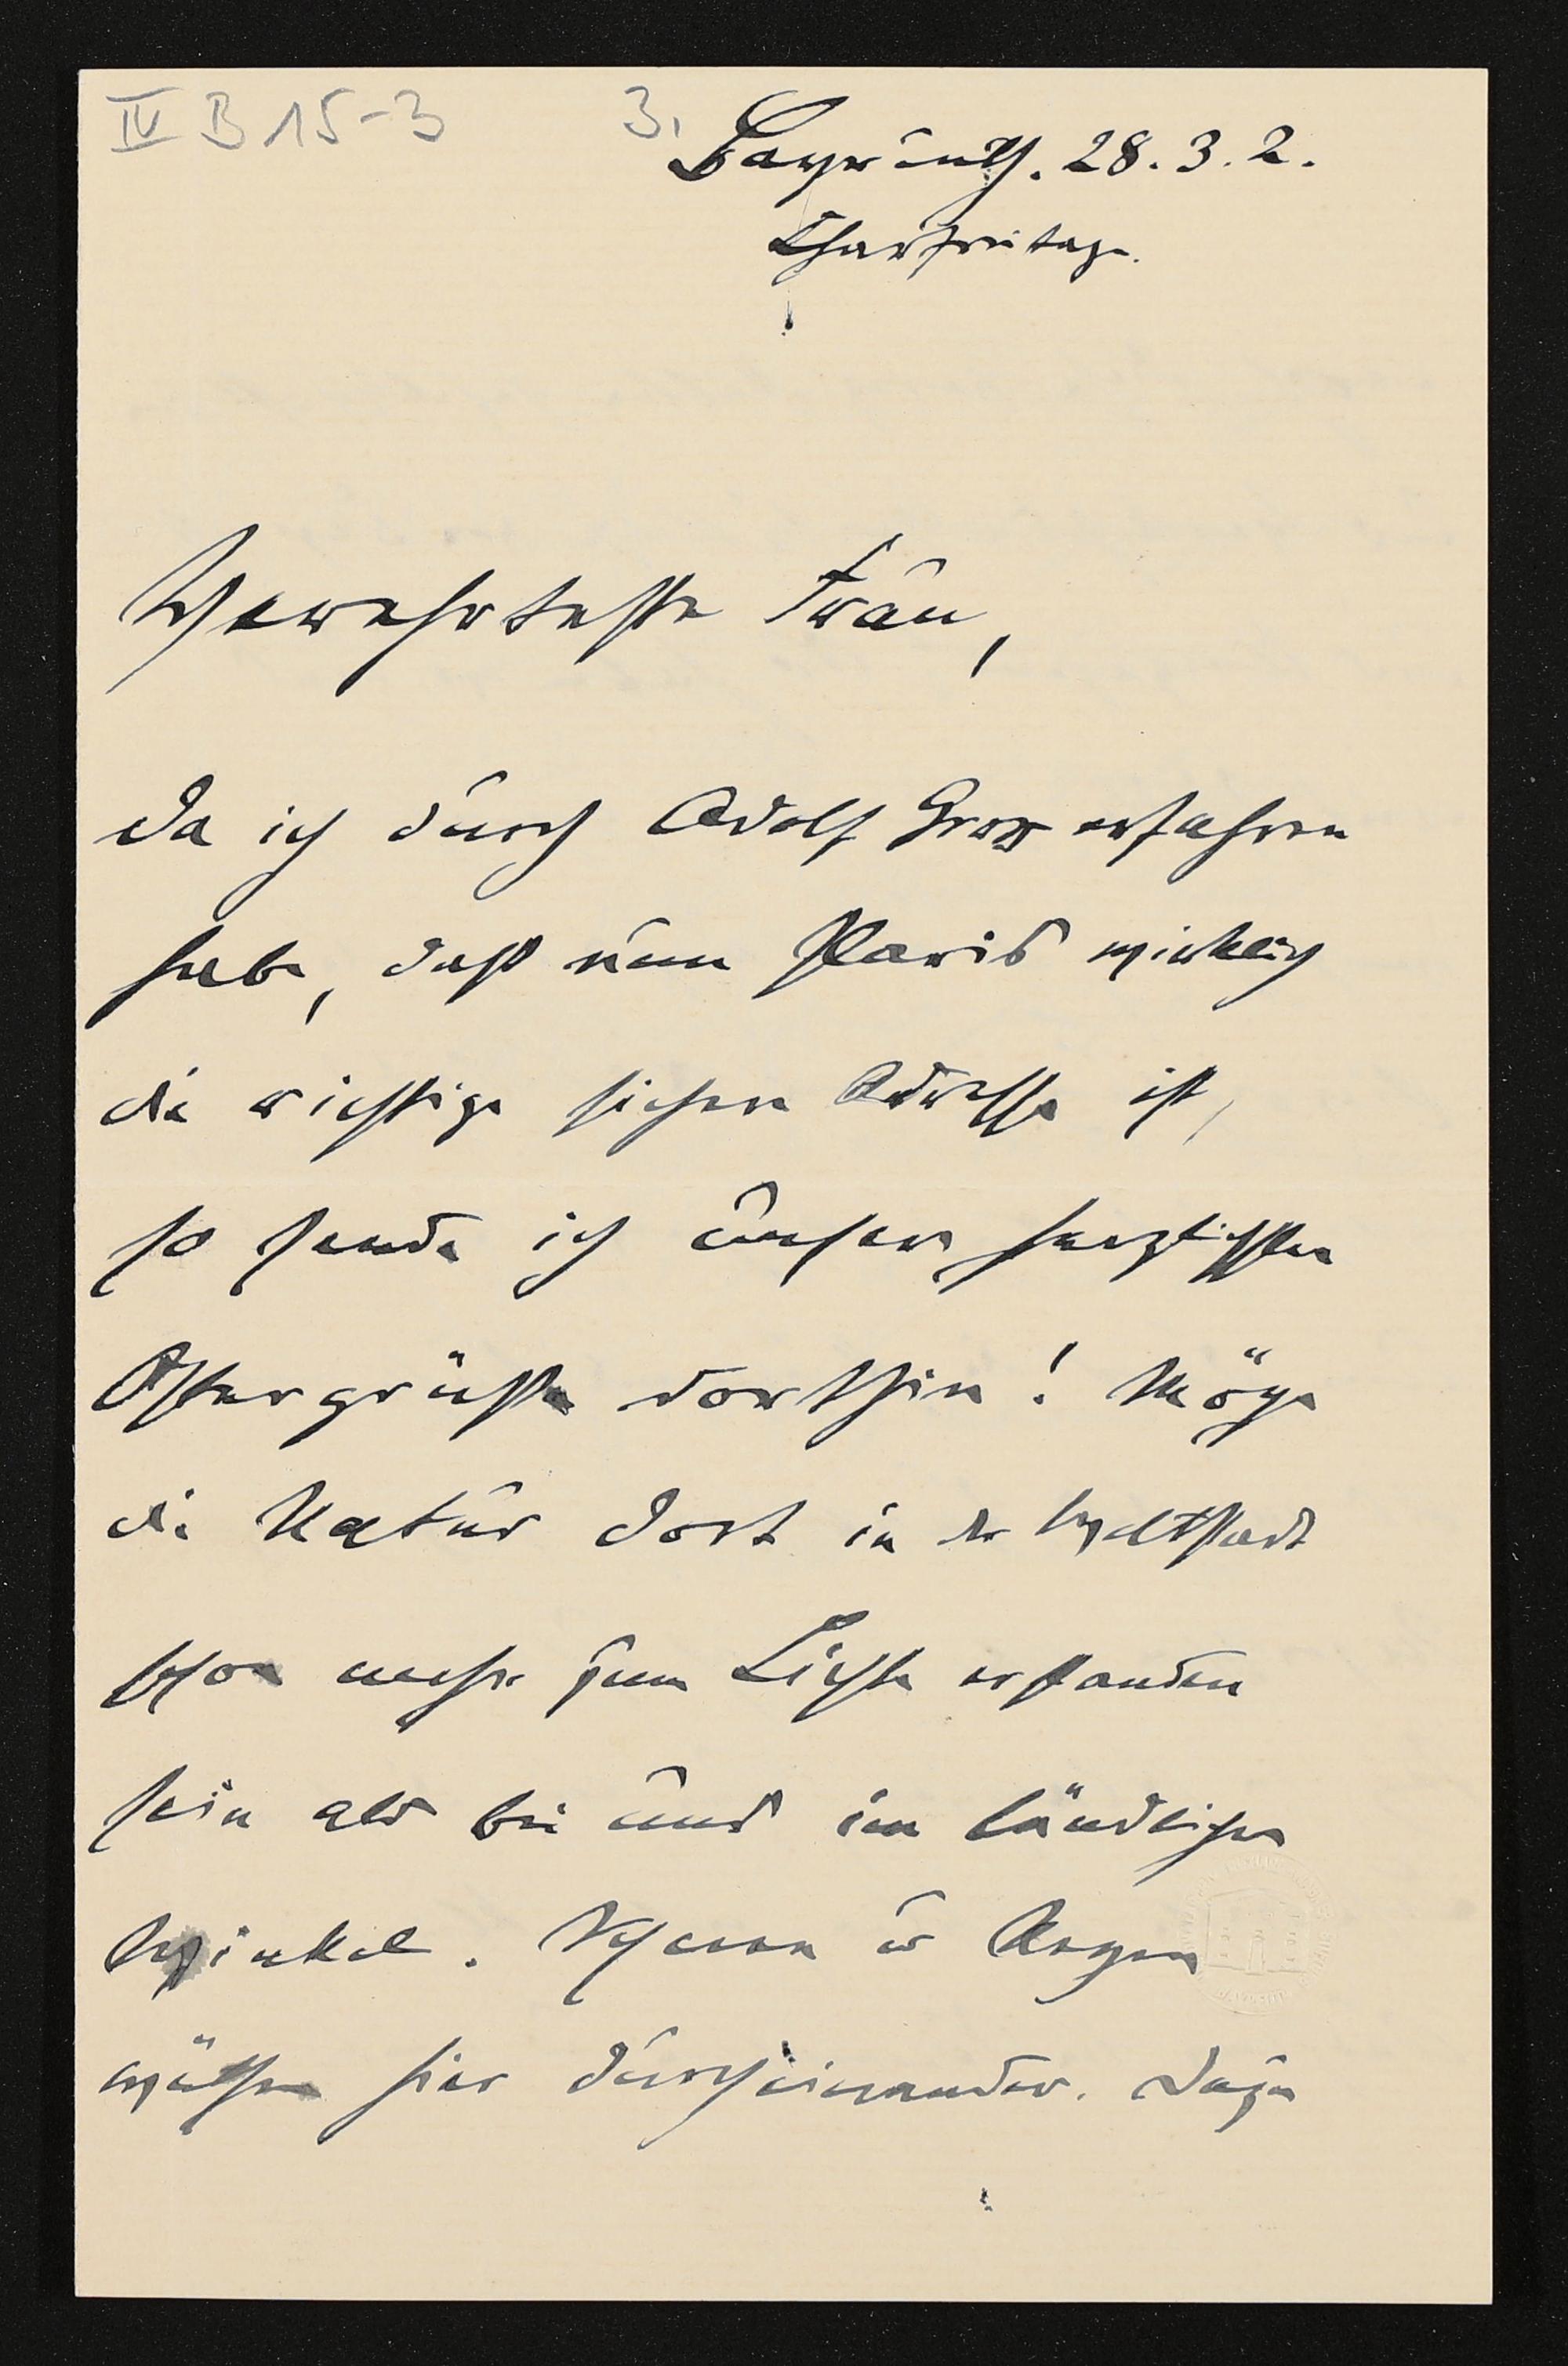 IV B 15-3
3.
Bayreuth. 28.3.2.
Charfreitag.
Verehrteste Frau,
Da ich durch Adolf Gross erfahren
habe, daß nun Paris wirklich
die richtige sichere Adresse ist,
so sende ich unsere herzlichsten
Ostergrüße dorthin! Möge
die Natur dort in der Weltstadt
schon mehr zum Lichte erstanden
sein als bei uns im ländlichen
Winkel. Schnee u Regen
wüthen hier durcheinander. Dazu